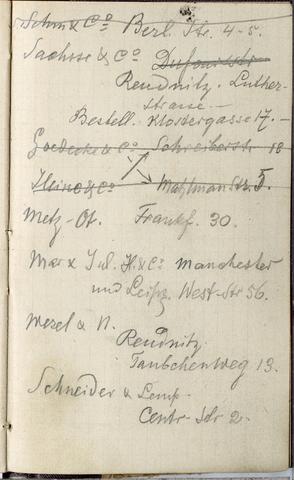 Schm & Co Berl. Str. 4-5.
Sachsse & Co Dufourstr.
Reudnitz. Luther-
strasse —
Bestell. Klostergasse 17. —
Goedecke & Co. Schreiberstr. 18
Heine & Co Mahlmann Str. 5.
Metz-Ot. Frankf. 30.
Marx Jul. H. & Co Manchester
und Leipz. West-Str 56.
Wezel & N.
Reudnitz.
Täubchenweg 13.
Schneider & Comp
Centr-Str 2.